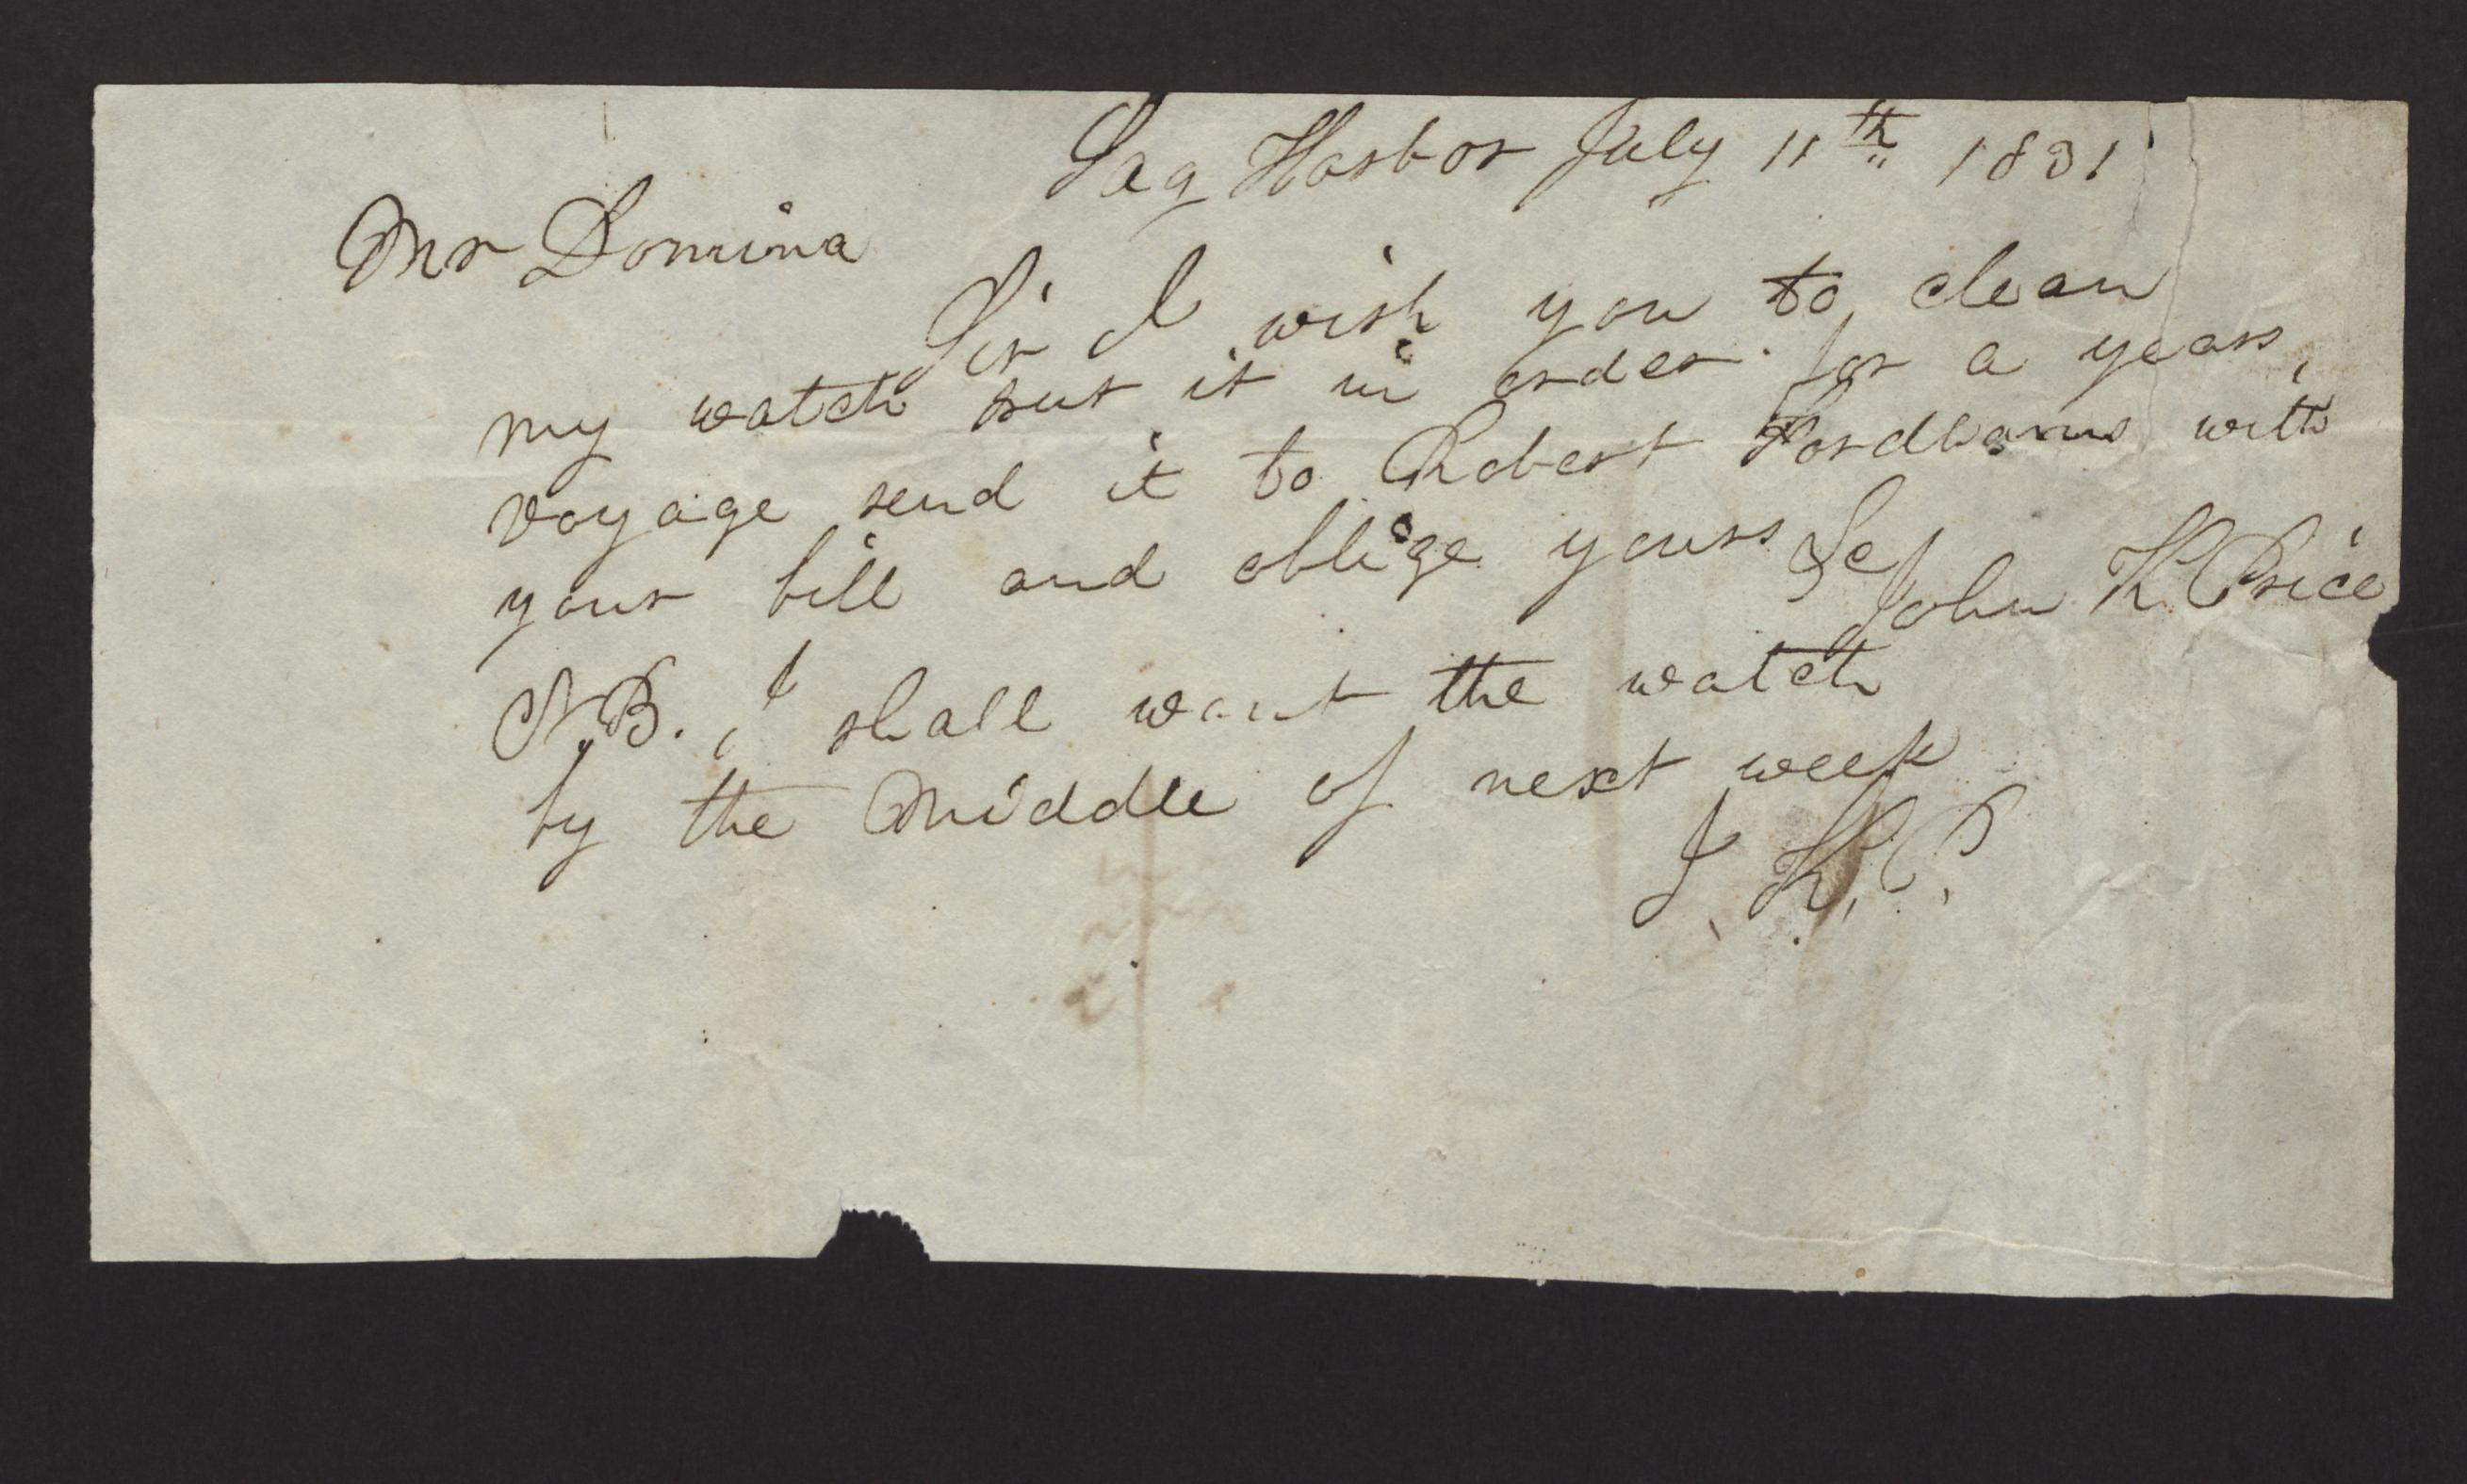 Sag Harbor July 11th 1831
Mr Domina
Sir I wish you to clean
my watch put it in order for a years
voyage send it to Robert Fordhams with
your bill and oblige yours &c
John K Price
NB. I shall want the watch
by the Middle of next week
J. K. P.